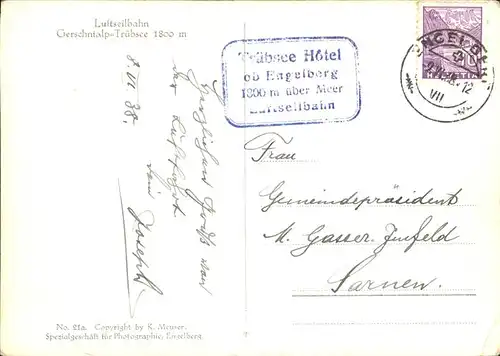 Luftseilbahn
Gerschnialp-Trübsee 1800 m
8. VII 38.
Herzlichen Gruß von
der Luftfahrt.
dein Joseph
Trübsee Hôtel
ob Engelberg
1800 m über Meer
Luftseilbahn
ENGELBERG
VII
HELVETIA
Frau
Gemeindepräsident
M. Gasser-Imfeld
Sarnen.
No. 21a. Copyright by K. Meuser,
Spezialgeschäft für Photographie, Engelberg.